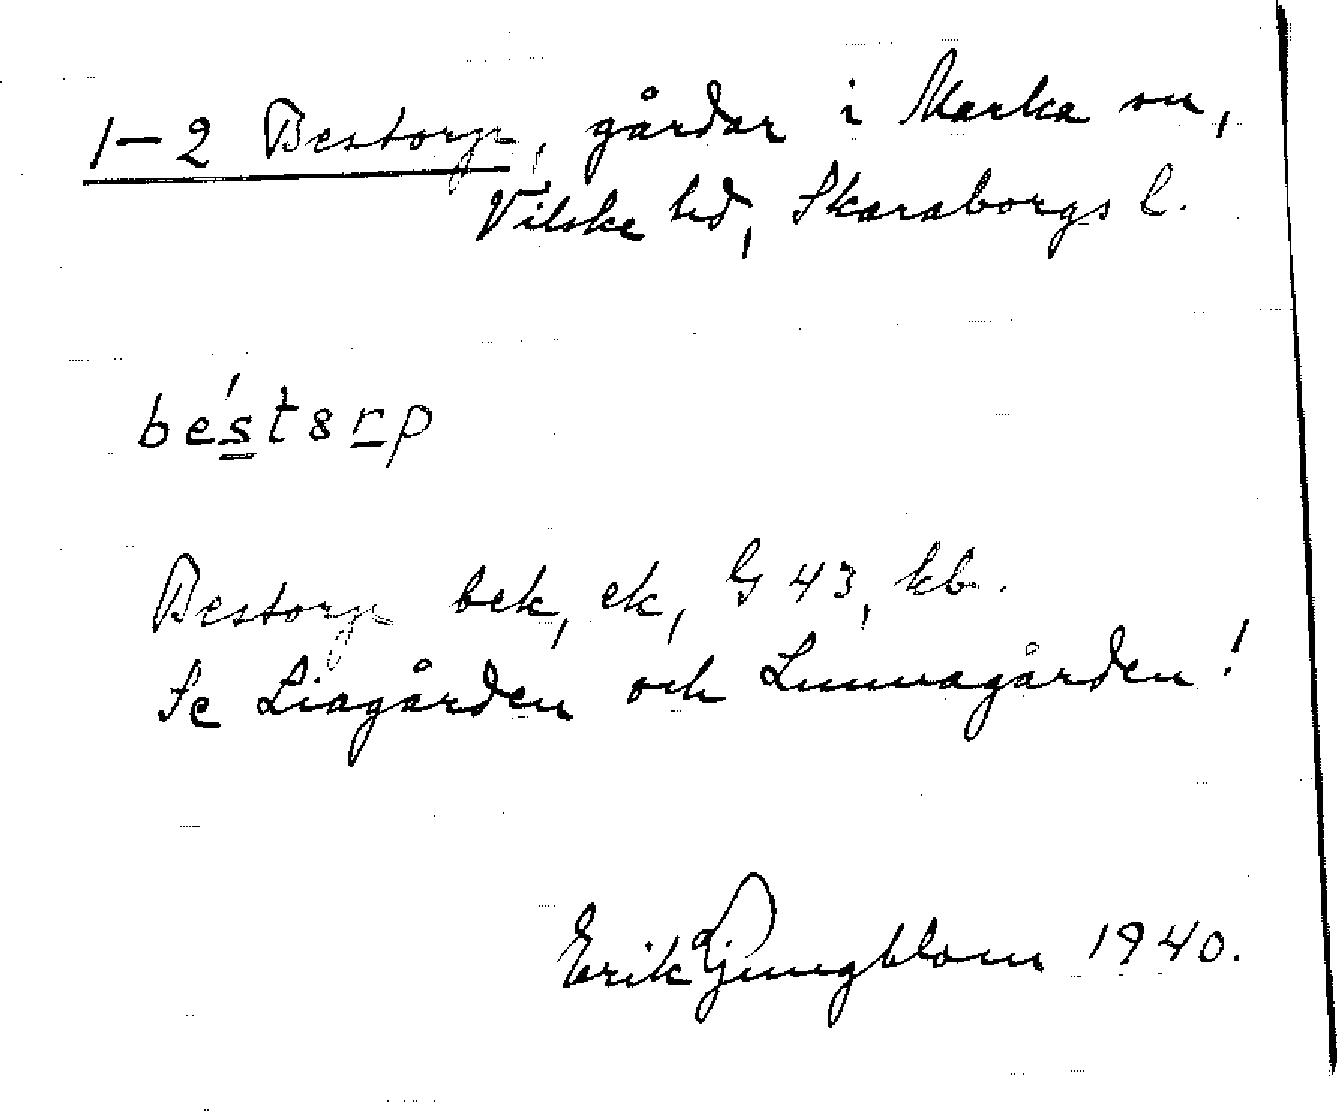 1–2 Bestorp, gårdar i Marka sn,
Vilske hd, Skaraborgs l.
bes´t8rp
Bestorp bek, ek, G 43, kb.
Se Liagården och Lunnagården!
Erik Ljungblom 1940.